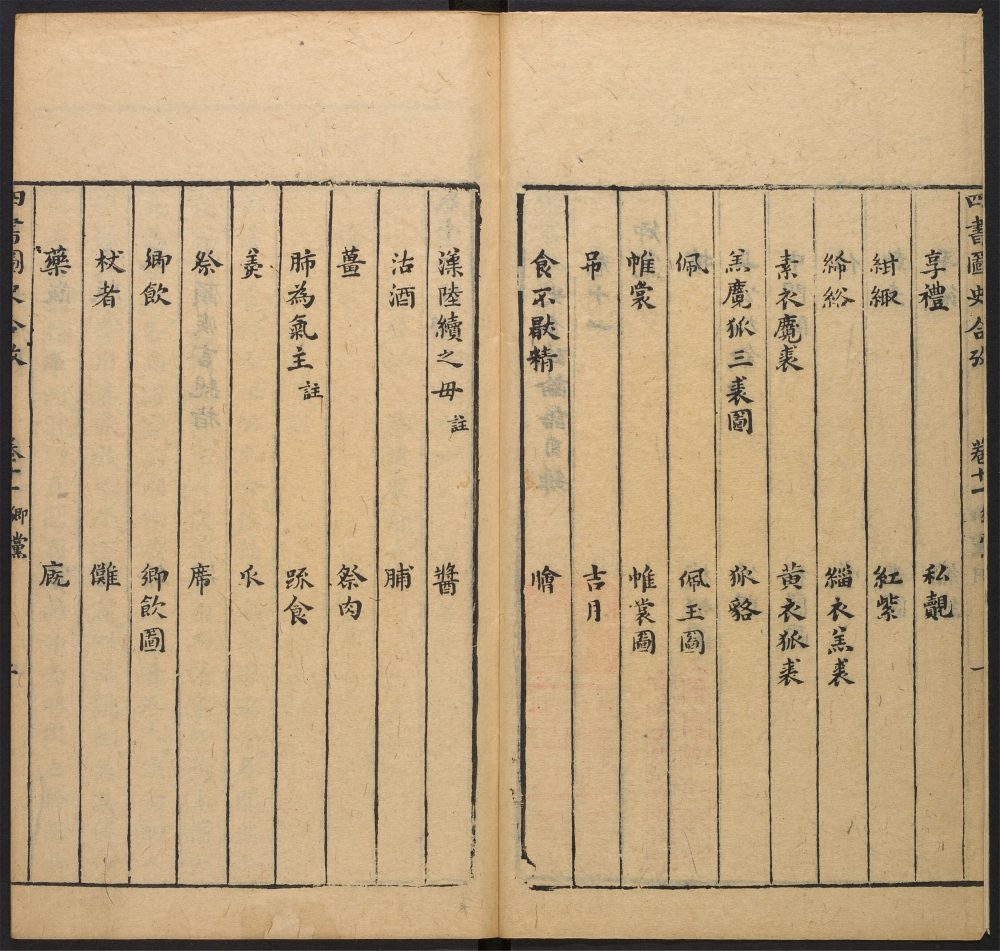 四書圖史合攷 卷十一 一
享禮 私覿
紺緅 紅紫
絺綌 緇衣羔裘
素衣麑裘 黃衣狐裘
羔麑狐三裘圖 狐貉
佩 佩玉圖
帷裳 帷裳圖
吊 吉月
食不厭精 膾
漢陸續之母註 醬
沽酒 脯
薑 祭肉
肺為氣主註 疏食
羹 瓜
祭 席
鄉飲 鄉飲圖
杖者 儺
藥 廄
四書圖史合攷 卷十一 鄉黨